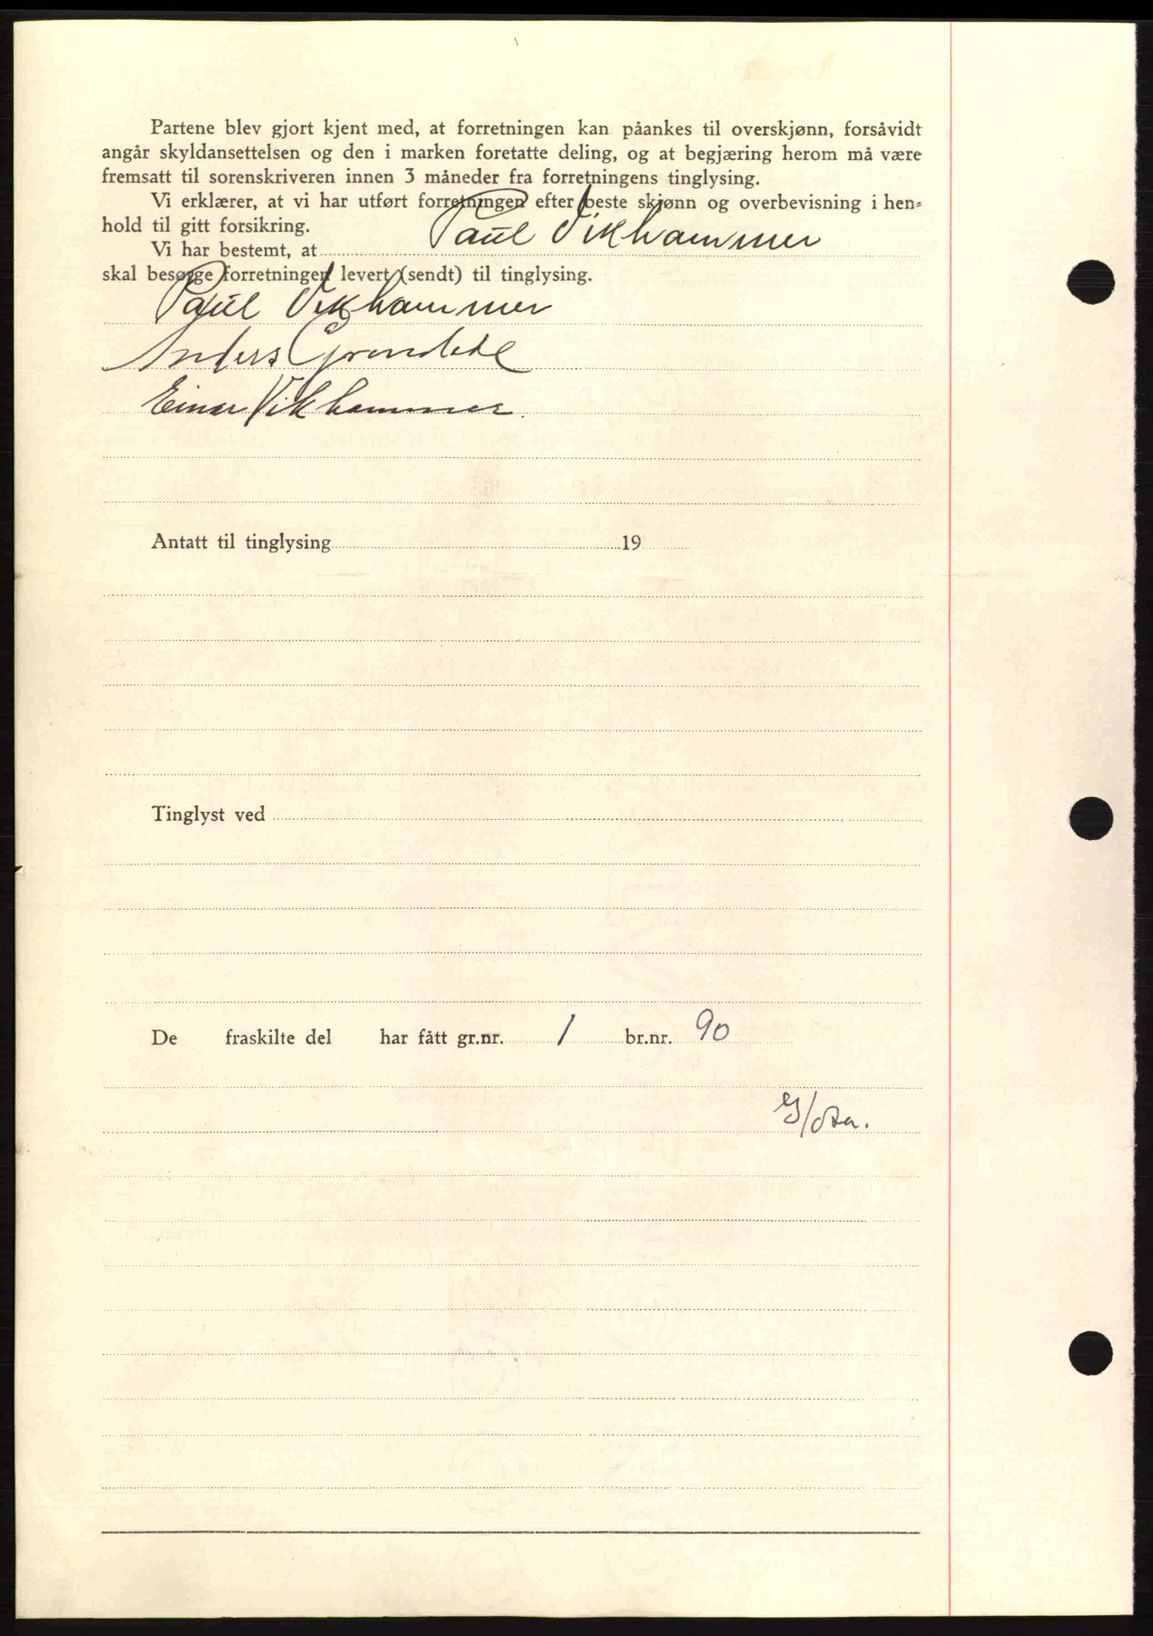 Partene blev gjort kjent med, at forretningen kan påankes til overskjønn, forsåvidt
angår skyldansettelsen og den i marken foretatte deling, og at begjæring herom må være
fremsatt til sorenskriveren innen 3 måneder fra forretningens tinglysing.
Vi erklærer, at vi har utført forretningen efter beste skjønn og overbevisning i hen-
hold til gitt forsikring.
Vi har bestemt, at Paul Vikhammer
skal besørge forretningen levert (sendt) til tinglysing.
Paul Vikhammer
Anders
Einar Vikhammer.
Antatt til tinglysing 19
Tinglyst ved
De fraskilte del har fått gr.nr. 1 br.nr. 90